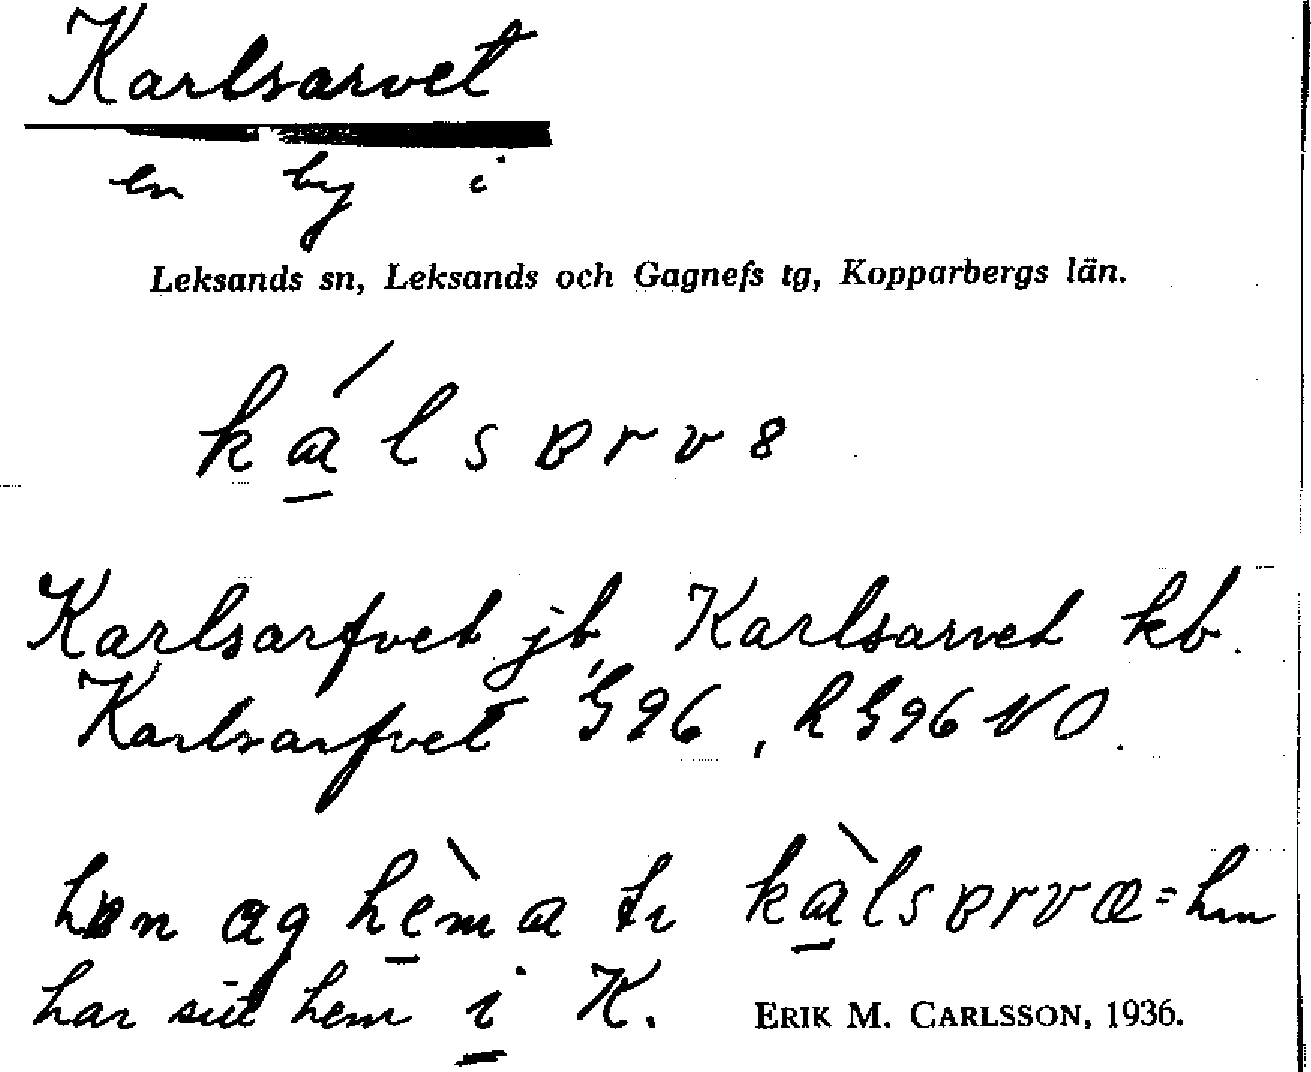 Karlsarvet
en by i
Leksands sn, Leksands och Gagnefs tg, Kopparbergs län.
ká̱lsɐrvə
Karlsarfvet jb, Karlsarvet kb.
Karlsarfvet G96, RG96NO.
hɐn ag hè̱ma ti kà̱lsɐrvæ = hon
har sitt hem i K.
ERIK M. CARLSSON, 1936.